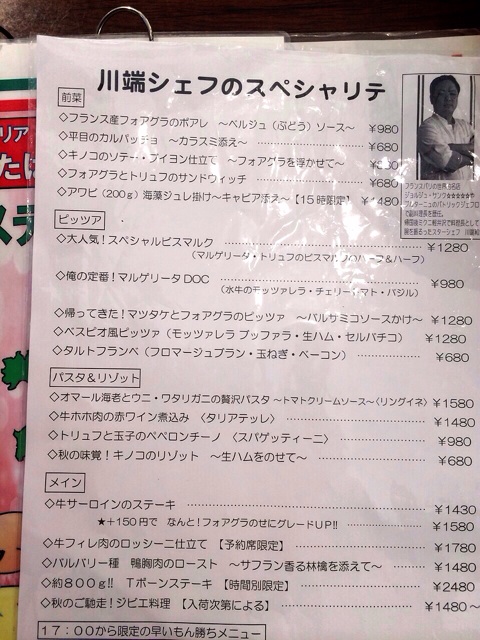 川端シェフのスペシャリテ
前菜
◇フランス産フォアグラのポアレ ～ベルジュ(ぶどう)ソース～ ¥980
◇平目のカルパッチョ ～カラスミ添え～ ¥680
◇キノコのソテー・ブイヨン仕立て ～フォアグラを浮かせて～
◇フォアグラとトリュフのサンドウィッチ ¥680
◇アワビ(200g)海藻ジュレ掛け～キャビア添え～【15時限定】 ¥1480
ピッツア
◇大人気!スペシャルビスマルク ¥1280
(マルゲリータ・トリュフのビスマルクのハーフ&ハーフ)
◇俺の定番!マルゲリータDOC ¥980
(水牛のモッツァレラ・チェリートマト・バジル)
◇帰ってきた!マツタケとフォアグラのピッツァ ～バルサミコソースかけ～ ¥1280
◇ベスビオ風ピッツァ(モッツァレラ ブッファラ・生ハム・セルバチコ) ¥1280
◇タルトフランベ(フロマージュブラン・玉ねぎ・ベーコン) ¥680
パスタ&リゾット
◇オマール海老とウニ・ワタリガニの贅沢パスタ～トマトクリームソース～〈リングイネ〉 ¥1580
◇牛ホホ肉の赤ワイン煮込み 〈タリアテッレ〉 ¥1480
◇トリュフと玉子のペペロンチーノ 〈スパゲッティーニ〉 ¥980
◇秋の味覚!キノコのリゾット ～生ハムをのせて～ ¥680
メイン
◇牛サーロインのステーキ ¥1430
★+150円で なんと!フォアグラのせにグレードUP!! ¥1580
◇牛フィレ肉のロッシーニ仕立て 【予約席限定】 ¥1780
◇バルバリー種 鴨胸肉のロースト ～サフラン香る林檎を添えて～ ¥1480
◇約800g!! Tボーンステーキ 【時間別限定】 ¥2480
◇秋のご馳走!ジビエ料理 【入荷次第による】 ¥1480～
17:00から限定の早いもん勝ちメニュー